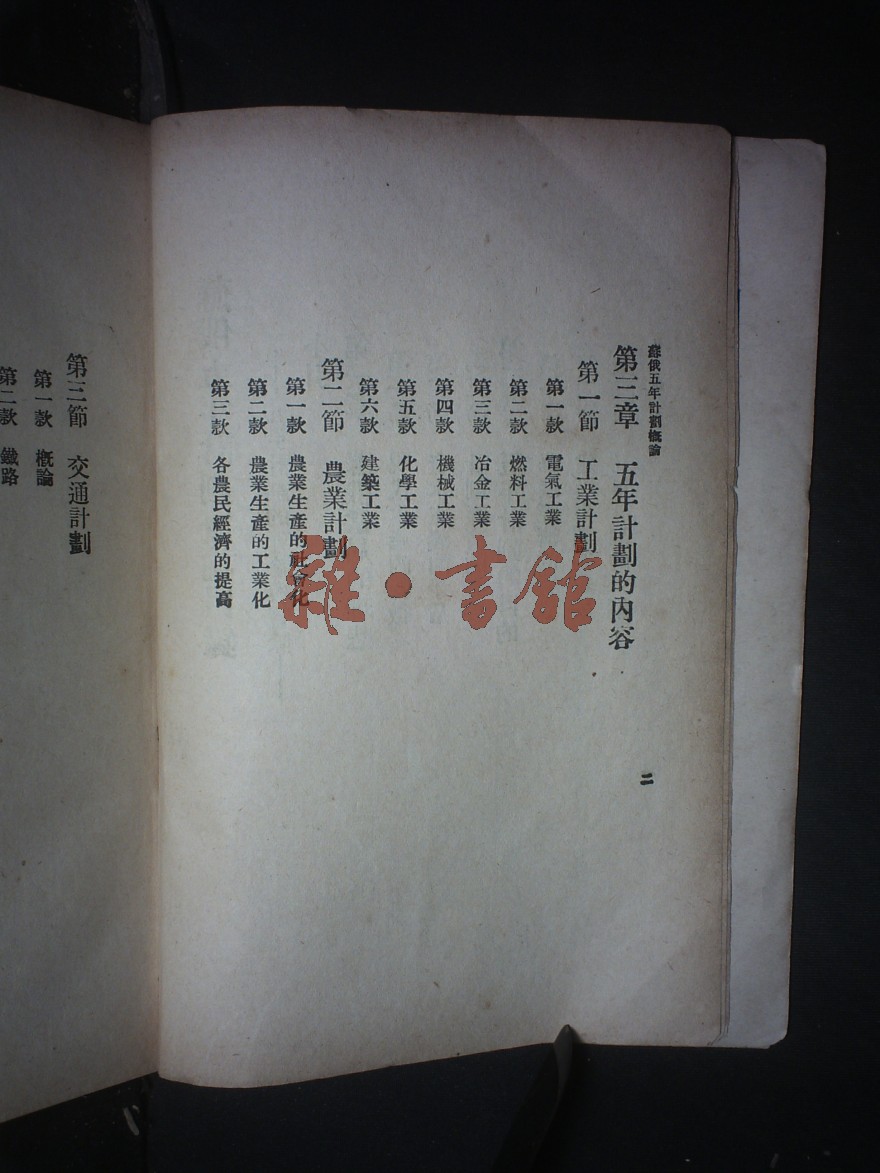 蘇俄五年計劃概論
第三章 五年計劃的內容
第一節 工業計劃
第一款 電氣工業
第二款 燃料工業
第三款 冶金工業
第四款 機械工業
第五款 化學工業
第六款 建築工業
第二節 農業計劃
第一款 農業生產的社會化
第二款 農業生產的工業化
第三款 各農民經濟的提高
二
第三節 交通計劃
第一款 概論
第二款 鐵路
雜·書館